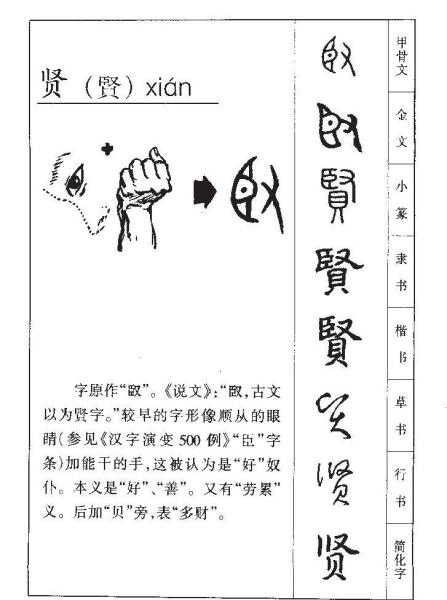 贤（賢）xián
字原作“臤”。《说文》：“臤，古文
以为贤字。”较早的字形像顺从的眼
睛（参见《汉字演变 500 例》“臣”字
条）加能干的手，这被认为是“好”奴
仆。本义是“好”、“善”。又有“劳累”
义。后加“贝”旁，表“多财”。
臤 甲骨文
臤 金文
賢 小篆
賢 隶书
賢 楷书
贤 草书
贤 行书
贤 简化字